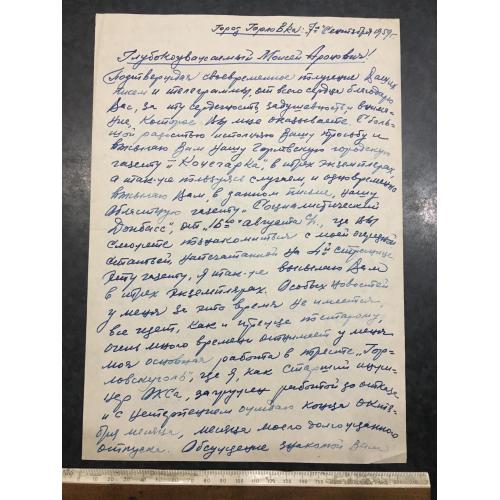 Город Горловка: 7го Сентября 1959 г.
Глубокоуважаемый Моисей Аронович!
Подтверждая своевременное получение Ваших
писем и телеграммы, от всего сердца благодарю
Вас, за ту сердечность, задушевность, и внима-
ние, которое Вы мне оказываете. С боль-
шой радостью исполняю Вашу просьбу и
высылаю Вам нашу Горловскую городскую
газету "Кочегарка", в трех экземплярах,
а так-же пользуясь случаем, и одновременно
высылаю Вам, в данном письме, нашу
областную газету "Социалистический
Донбасс", от "16го" августа с/г., где Вы
сможете ознакомиться с моей очередной
статьей, напечатанной на 4й странице
Эту газету, я так-же высылаю Вам
в трех экземплярах. Особых новостей
у меня за это время не имеется,
все идет, как и прежде по старому,
очень много времени отнимает у меня
моя основная работа в тресте "Гор-
ловскуголь", где я, как старший инже-
нер ОКСа, загружен работой до отказа
и с нетерпением ожидаю конца октя-
бря месяца, месяца моего долгожданного
отпуска. Обсуждение знакомой Вам